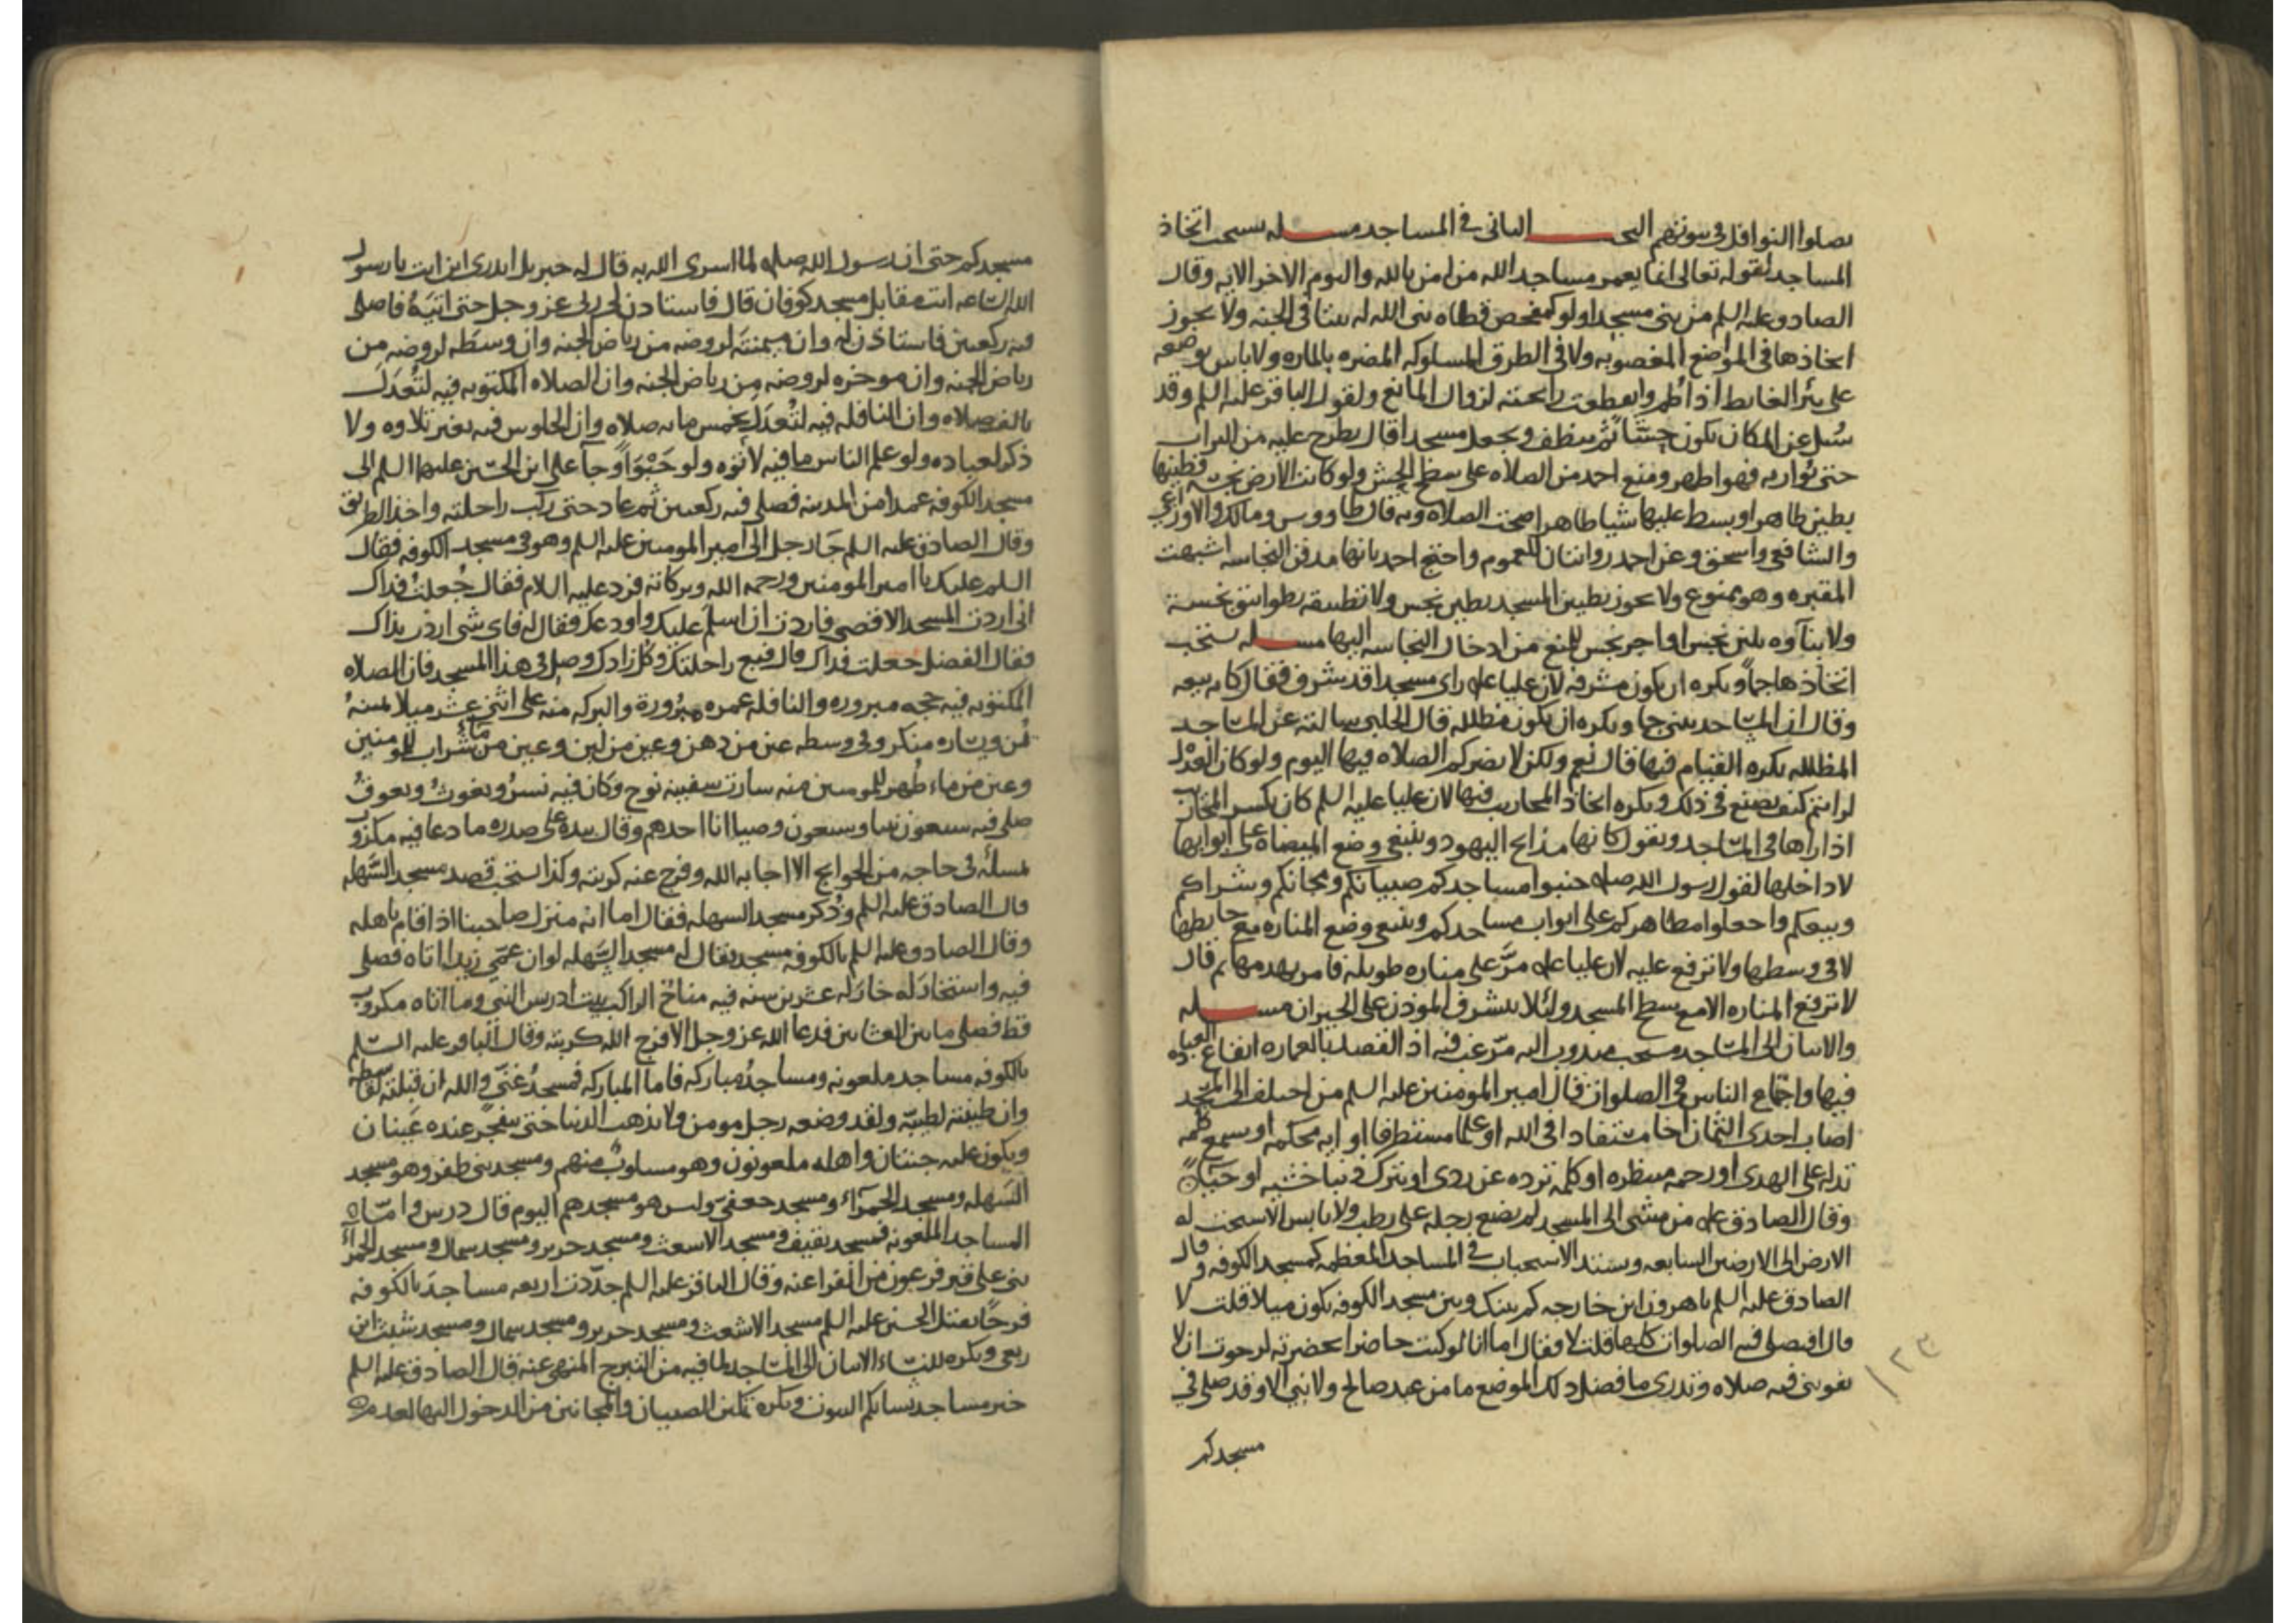 يصلوا النوافل في بيوتهم البحث الثاني في المساجد مسله يستحب اتخاذ
المساجد لقوله تعالى انما يعمر مساجد الله من امن بالله واليوم الاخر الايه وقال
الصادق عليه السلم من بنى مسجدا ولو كمفحص قطاه بنى الله له بيتا في الجنه ولا يجوز
اتخاذها في المواضع المغصوبه ولا في الطرق المسلوكه المضره بالماره ولا باس بوضعه
على بئر الغايط اذا طم وانقطعت رايحته لزوال المانع ولقول الباقر عليه السلم وقد
سئل عن المكان يكون حشا ثم ينظف ويجعل مسجدا قال يطرح عليه من التراب
حتى يواريه فهو اطهر ومنع احمد من الصلاه على سطح الحش ولو كانت الارض نجسه فطينها
بطين طاهر او بسط عليها شيا طاهرا صحت الصلاه وبه قال طاووس ومالك والاوزاعي
والشافعي واسحق وعن احمد روايتان للعموم واحتج احمد بانها مدفن النجاسه اشبهت
المقبره وهو ممنوع ولا يجوز تطيين المسجد بطين نجس ولا تطبيقه بطوابيق نجسة
ولا بناوه بلبن نجس او اجر نجس للمنع من ادخال النجاسه اليها مسله يستحب
اتخاذها جما ويكره ان يكون مشرفه لان عليا عله راى مسجدا قد شرف فقال كانه بيعه
وقال ان المساجد تبنى جما ويكره ان يكون مظلله قال الحلبي سالته عن المساجد
المظلله يكره القيام فيها قال نعم ولكن لا يضركم الصلاه فيها اليوم ولو كان العدل
لرايتم كيف يصنع في ذلك ويكره اتخاذ المحاريب فيها لان عليا عليه السلم كان يكسر المحاريب
اذا راها في المساجد ويقول كانها مذابح اليهود وينبغي وضع الميضاه على ابوابها
لا داخلها لقول رسول الله صله جنبوا مساجدكم صبيانكم ومجانينكم وشراكم
وبيعكم واجعلوا مطاهركم على ابواب مساجدكم وينبغي وضع المناره مع حايطها
لا في وسطها ولا ترفع عليه لان عليا عله مر على مناره طويله فامر بهدمها ثم قال
لا ترفع المناره الا مع سطح المسجد ولئلا يتشرف الموذن على الجيران مسله
والاتيان الى المساجد مستحب مندوب اليه مرغب فيه اذ القصد بالعماره ايقاع العباده
فيها واجتماع الناس في الصلوات قال امير المومنين عليه السلم من اختلف الى المسجد
اصاب احدى الثمان اخا مستفادا في الله او علما مستطرفا او ايه محكمه او يسمع كلمه
تدله على الهدى او رحمه منتظره او كلمه ترده عن ردى او يترك ذنبا خشيه او حياء
وقال الصادق عله من مشى الى المسجد لم يضع رجله على رطب ولا يابس الا سبحت له
الارض الى الارضين السابعه ويشتد الاستحباب في المساجد المعظمه كمسجد الكوفه وقال
الصادق عليه السلم يا هرون ابن خارجه كم بينك وبين مسجد الكوفه يكون ميلا قلت لا
قال افتصلي فيه الصلوات كلها قلت لا فقال اما انا لو كنت حاضرا بحضرته لرجوت ان لا
تفوتني فيه صلاه وتدري ما فضل ذلك الموضع ما من عبد صالح ولا نبي الا وقد صلى في
مسجدكم
١٢٣
مسجدكم حتى ان رسول الله صله لما اسرى الله به قال له جبريل اتدري اين انت يا رسول
الله الساعه انت مقابل مسجد كوفان قال فاستاذن لي ربي عز وجل حتى اتيه فاصلي
فيه ركعتين فاستاذن له وان ميمنته لروضه من رياض الجنه وان وسطه لروضه من
رياض الجنه وان موخره لروضه من رياض الجنه وان الصلاه المكتوبه فيه لتعدل
بالف صلاه وان النافله فيه لتعدل بخمس مايه صلاه وان الجلوس فيه بغير تلاوه ولا
ذكر لعباده ولو علم الناس ما فيه لاتوه ولو حبوا وجا علي ابن الحسين عليهما السلم الى
مسجد الكوفه عمدا من المدينه فصلى فيه ركعتين ثم عاد حتى ركب راحلته واخذ الطريق
وقال الصادق عليه السلم جا رجل الى امير المومنين عليه السلم وهو في مسجد الكوفه فقال
السلم عليك يا امير المومنين ورحمه الله وبركاته فرد عليه السلام فقال جعلت فداك
اني اردت المسجد الاقصى فاردت ان اسلم عليك واودعك فقال له فاي شي اردت بذاك
فقال الفضل جعلت فداك قال فبع راحلتك وكل زادك وصل في هذا المسجد فان الصلاه
المكتوبه فيه حجه مبروره والنافله عمره مبرورة والبركه منه على اثني عشر ميلا يمينه
يمن ويساره منكر وفي وسطه عين من دهن وعين من لبن وعين من ما شراب للمومنين
وعين من ماء طهر للمومنين منه سارت سفينه نوح وكان فيه نسر ويغوث ويعوق
صلى فيه سبعون نبيا وسبعون وصيا انا احدهم وقال بيده على صدره ما دعا فيه مكروب
لمسلة في حاجه من الحوايج الا اجابه الله وفرج عنه كربته وكذا يستحب قصد مسجد السهله
قال الصادق عليه السلم وذكر مسجد السهله فقال اما انه منزل صاحبنا اذا قام باهله
وقال الصادق عليه السلم بالكوفه مسجد يقال له مسجد السهله لو ان عمي زيدا اتاه فصلى
فيه واستجار له جار له عشرين سنه فيه مناخ الراكب بيت ادريس النبي وما اتاه مكروب
قط فصلى ما بين العشاين فدعا الله عز وجل الا فرج الله كربته وقال الباقر عليه السلم
بالكوفه مساجد ملعونه ومساجد مباركه فاما المباركه فمسجد غني والله ان قبلته لقاسطه
وان طينته لطيبه ولقد وضعه رجل مومن ولا تذهب الدنيا حتى ينفجر عنده عينان
ويكون عليه جنتان واهله ملعونون وهو مسلوب منهم ومسجد بني ظفر وهو مسجد
السهله ومسجد الحمراء ومسجد جعفي وليس هو مسجدهم اليوم قال درس واما
المساجد الملعونه فمسجد ثقيف ومسجد الاشعث ومسجد جرير ومسجد سمال ومسجد الحمراء
بني على قبر فرعون من الفراعنه وقال الباقر عليه السلم جددت اربعه مساجد بالكوفه
فرحا بقتل الحسين عليه السلم مسجد الاشعث ومسجد جرير ومسجد سمال ومسجد شبث ابن
ربعي ويكره للنساء الاتيان الى المساجد لما فيه من التبرج المنهي عنه قال الصادق عليه السلم
خير مساجد نسائكم البيوت ويكره تمكين الصبيان والمجانين من الدخول اليها لعدم